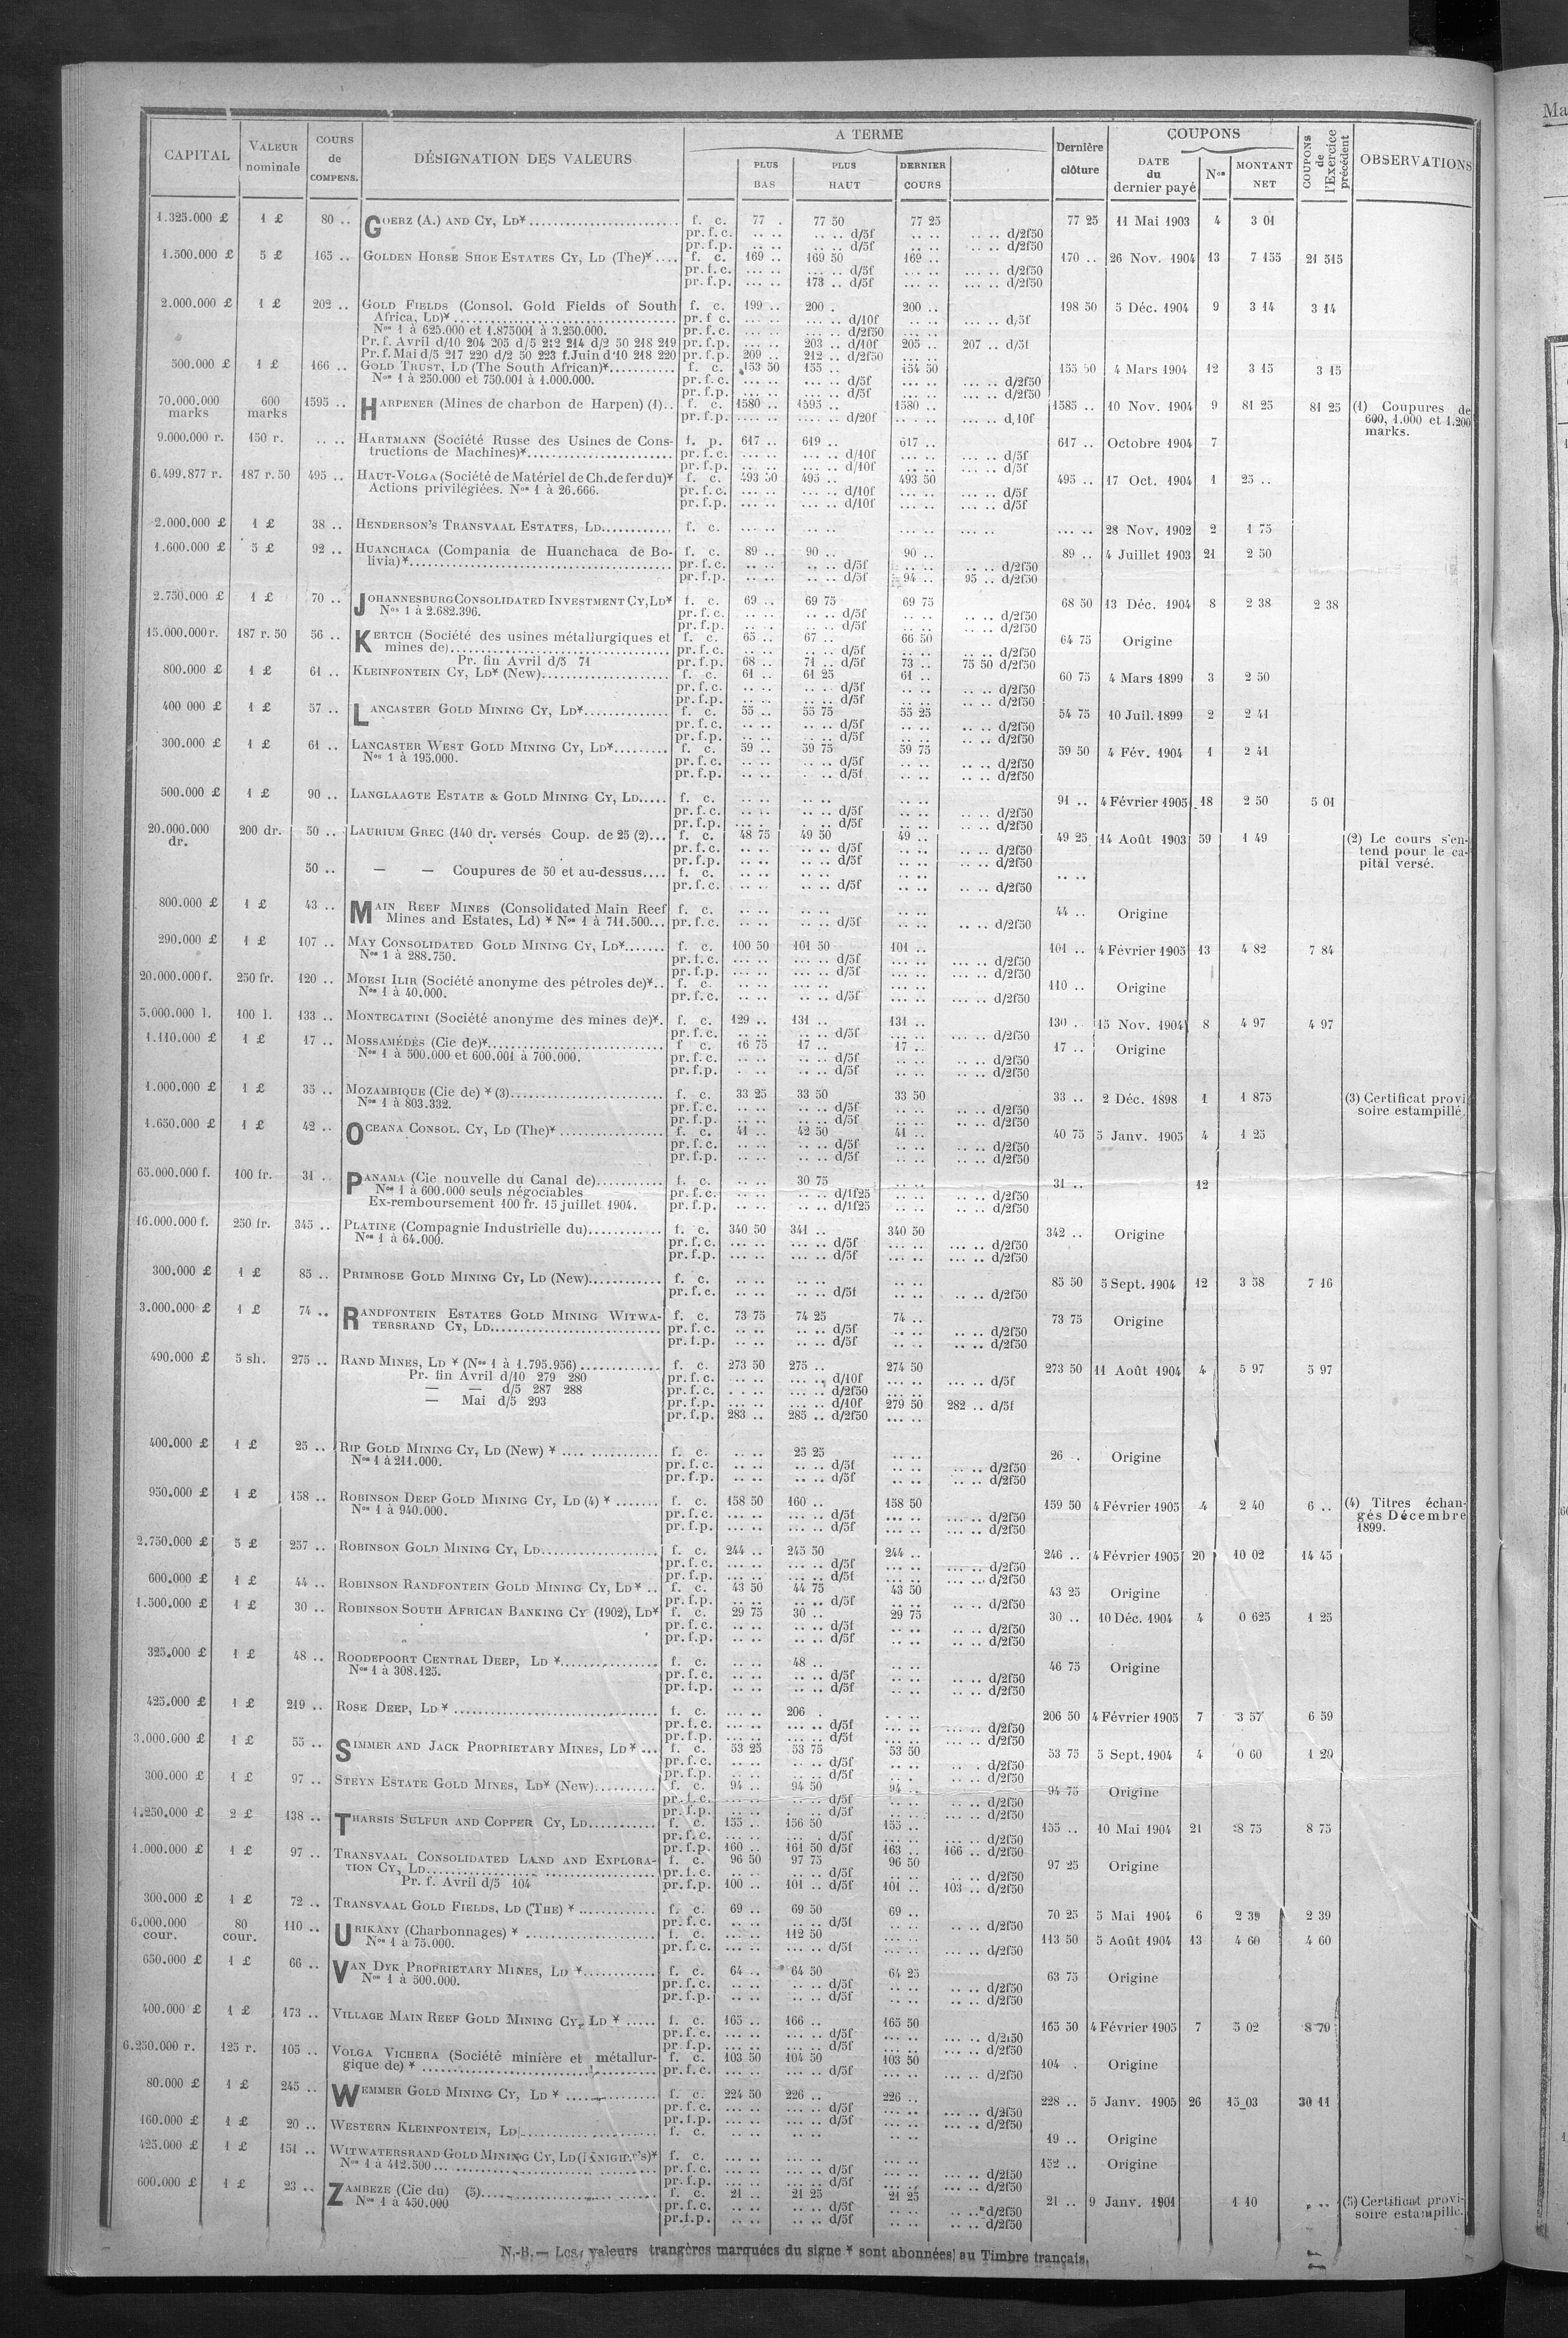 CAPITAL VALEUR nominale COURS de COMPENS. DÉSIGNATION DES VALEURS A TERME PLUS BAS PLUS HAUT DERNIER COURS Dernière clôture COUPONS DATE du dernier payé Nos MONTANT NET COUPONS de l'Exercice précédent OBSERVATIONS
1.325.000 £ 1 £ 80 .. GOERZ (A.) AND CY, LD* f. c. 77 . 77 50 77 25 77 25 11 Mai 1903 4 3 01
pr. f. c. .. .. .. .. d/5f .. .. .. .. d/2f50
pr. f. p. .. .. .. .. d/5f .. .. .. .. d/2f50
1.500.000 £ 5 £ 165 .. GOLDEN HORSE SHOE ESTATES CY, LD (The)* f. c. 169 .. 169 50 169 .. 170 .. 26 Nov. 1904 13 7 155 21 515
pr. f. c. ... .. ... .. d/5f ... .. ... .. d/2f50
pr. f. p. ... .. 173 .. d/5f ... .. ... .. d/2f50
2.000.000 £ 1 £ 202 .. GOLD FIELDS (Consol. Gold Fields of South f. c. 199 .. 200 . 200 .. 198 50 5 Déc. 1904 9 3 14 3 14
Africa, LD)* pr. f. c. ... .. ... .. d/10f ... .. ... .. d/5f
Nos 1 à 625.000 et 1.875001 à 3.250.000. pr. f. c. ... .. ... .. d/2f50 ... ..
Pr. f. Avril d/10 204 205 d/5 212 214 d/2 50 218 219 pr. f. p. ... .. 203 .. d/10f 205 .. 207 .. d/5f
Pr. f. Mai d/5 217 220 d/2 50 223 f. Juin d/10 218 220 pr. f. p. 209 .. 212 .. d/2f50 ... ..
500.000 £ 1 £ 166 .. GOLD TRUST, LD (The South African)* f. c. 153 50 155 .. 154 50 155 50 4 Mars 1904 12 3 15 3 15
Nos 1 à 250.000 et 750.001 à 1.000.000. pr. f. c. ... .. ... .. d/5f ... .. ... .. d/2f50
pr. f. p. ... .. ... .. d/5f ... .. ... .. d/2f50
70.000.000 marks 600 marks 1595 .. HARPENER (Mines de charbon de Harpen) (1).. f. c. 1580 .. 1595 .. 1580 .. 1585 .. 10 Nov. 1904 9 81 25 81 25 (1) Coupures de 600, 1.000 et 1.200 marks.
pr. f. p. .... .. .... .. d/20f .... .. d/10f
9.000.000 r. 150 r. .. .. HARTMANN (Société Russe des Usines de Cons- f. p. 617 .. 619 .. 617 .. 617 .. Octobre 1904 7
tructions de Machines)* pr. f. c. ... .. ... .. d/10f ... .. ... .. d/5f
pr. f. p. ... .. ... .. d/10f ... .. ... .. d/5f
6.499.877 r. 187 r. 50 495 .. HAUT-VOLGA (Société de Matériel de Ch. de fer du)* f. c. 493 50 495 .. 493 50 495 .. 17 Oct. 1904 1 25 ..
Actions privilégiées. Nos 1 à 26.666. pr. f. c. ... .. ... .. d/10f ... .. ... .. d/5f
pr. f. p. ... .. ... .. d/10f ... .. ... .. d/5f
2.000.000 £ 1 £ 38 .. HENDERSON'S TRANSVAAL ESTATES, LD f. c. ... .. ... .. ... .. ... .. ... .. 28 Nov. 1902 2 1 75
1.600.000 £ 5 £ 92 .. HUANCHACA (Compania de Huanchaca de Bo- f. c. 89 .. 90 .. 90 .. 89 .. 4 Juillet 1903 21 2 50
livia)* pr. f. c. .. .. .. .. d/5f .. .. .. .. d/2f50
pr. f. p. .. .. .. .. d/5f 94 .. 95 .. d/2f50
2.750.000 £ 1 £ 70 .. JOHANNESBURG CONSOLIDATED INVESTMENT CY, LD* f. c. 69 .. 69 75 69 75 68 50 13 Déc. 1904 8 2 38 2 38
Nos 1 à 2.682.396. pr. f. c. .. .. .. .. d/5f .. .. .. .. d/2f50
pr. f. p. .. .. .. .. d/5f .. .. .. .. d/2f50
15.000.000 r. 187 r. 50 56 .. KERTCH (Société des usines métallurgiques et f. c. 65 .. 67 .. 66 50 64 75 Origine
mines de) pr. f. c. .. .. .. .. d/5f .. .. .. .. d/2f50
Pr. fin Avril d/5 71 pr. f. p. 68 .. 71 .. d/5f 73 .. 75 50 d/2f50
800.000 £ 1 £ 61 .. KLEINFONTEIN CY, LD* (New) f. c. 61 .. 61 25 61 .. 60 75 4 Mars 1899 3 2 50
pr. f. c. .. .. .. .. d/5f .. .. .. .. d/2f50
pr. f. p. .. .. .. .. d/5f .. .. .. .. d/2f50
400 000 £ 1 £ 57 .. LANCASTER GOLD MINING CY, LD* f. c. 55 .. 55 75 55 25 54 75 10 Juil. 1899 2 2 41
pr. f. c. .. .. .. .. d/5f .. .. .. .. d/2f50
pr. f. p. .. .. .. .. d/5f .. .. .. .. d/2f50
300.000 £ 1 £ 61 .. LANCASTER WEST GOLD MINING CY, LD* f. c. 59 .. 59 75 59 75 59 50 4 Fév. 1904 1 2 41
Nos 1 à 195.000. pr. f. c. .. .. .. .. d/5f .. .. .. .. d/2f50
pr. f. p. .. .. .. .. d/5f .. .. .. .. d/2f50
500.000 £ 1 £ 90 .. LANGLAAGTE ESTATE & GOLD MINING CY, LD f. c. .. .. .. .. .. .. 91 .. 4 Février 1905 18 2 50 5 01
pr. f. c. .. .. .. .. d/5f .. .. .. .. d/2f50
pr. f. p. .. .. .. .. d/5f .. .. .. .. d/2f50
20.000.000 dr. 200 dr. 50 .. LAURIUM GREC (140 dr. versés Coup. de 25 (2)... f. c. 48 75 49 50 49 .. 49 25 14 Août 1903 59 1 49 (2) Le cours s'en- tend pour le ca- pital versé.
pr. f. c. .. .. .. .. d/5f .. .. .. .. d/2f50
pr. f. p. .. .. .. .. d/5f .. .. .. .. d/2f50
50 .. — — Coupures de 50 et au-dessus.... f. c. .. .. .. .. .. .. .. ..
pr. f. c. .. .. .. .. d/5f .. .. .. .. d/2f50
800.000 £ 1 £ 43 .. MAIN REEF MINES (Consolidated Main Reef f. c. .. .. .. .. .. .. 44 .. Origine
Mines and Estates, Ld) * Nos 1 à 711.500... pr. f. c. .. .. .. .. d/5f .. .. .. .. d/2f50
290.000 £ 1 £ 107 .. MAY CONSOLIDATED GOLD MINING CY, LD* f. c. 100 50 101 50 101 .. 101 .. 4 Février 1905 13 4 82 7 84
Nos 1 à 288.750. pr. f. c. ... .. ... .. d/5f ... .. ... .. d/2f50
pr. f. p. ... .. ... .. d/5f ... .. ... .. d/2f50
20.000.000 f. 250 fr. 120 .. MOESI ILIR (Société anonyme des pétroles de)*.. f. c. .. .. .. .. ... .. 110 .. Origine
Nos 1 à 40.000. pr. f. c. .. .. .. .. d/5f ... .. ... .. d/2f50
5.000.000 l. 100 l. 133 .. MONTECATINI (Société anonyme des mines de)*. f. c. 129 .. 131 .. 131 .. 130 . 15 Nov. 1904 8 4 97 4 97
pr. f. c. .. .. .. .. d/5f ... .. ... .. d/2f50
1.110.000 £ 1 £ 17 .. MOSSAMÉDÈS (Cie de)* f. c. 16 75 17 .. 17 .. 17 .. Origine
Nos 1 à 500.000 et 600.001 à 700.000. pr. f. c. .. .. .. .. d/5f .. .. .. .. d/2f50
pr. f. p. .. .. .. .. d/5f .. .. .. .. d/2f50
1.000.000 £ 1 £ 35 .. MOZAMBIQUE (Cie de) * (3) f. c. 33 25 33 50 33 50 33 .. 2 Déc. 1898 1 1 875 (3) Certificat provi soire estampillé.
Nos 1 à 803.332. pr. f. c. .. .. .. .. d/5f .. .. .. .. d/2f50
pr. f. p. .. .. .. .. d/5f .. .. .. .. d/2f50
1.650.000 £ 1 £ 42 .. OCEANA CONSOL. CY, LD (The)* f. c. 41 .. 42 50 41 .. 40 75 5 Janv. 1905 4 1 25
pr. f. c. .. .. .. .. d/5f .. .. .. .. d/2f50
pr. f. p. .. .. .. .. d/5f .. .. .. .. d/2f50
65.000.000 f. 100 fr. 31 .. PANAMA (Cie nouvelle du Canal de) f. c. .. .. 30 75 .. .. 31 .. 12
Nos 1 à 600.000 seuls négociables pr. f. c. .. .. .. .. d/1f25 .. .. .. .. d/2f50
Ex-remboursement 100 fr. 15 juillet 1904. pr. f. p. .. .. .. .. d/1f25 .. .. .. .. d/2f50
16.000.000 f. 250 fr. 345 .. PLATINE (Compagnie Industrielle du) f. c. 340 50 341 .. 340 50 342 .. Origine
Nos 1 à 64.000. pr. f. c. ... .. ... .. d/5f ... .. ... .. d/2f50
pr. f. p. ... .. ... .. d/5f ... .. ... .. d/2f50
300.000 £ 1 £ 85 .. PRIMROSE GOLD MINING CY, LD (New) f. c. .. .. .. .. .. .. 85 50 5 Sept. 1904 12 3 58 7 16
pr. f. c. .. .. .. .. d/5f .. .. .. .. d/2f50
3.000.000 £ 1 £ 74 .. RANDFONTEIN ESTATES GOLD MINING WITWA- f. c. 73 75 74 25 74 .. 73 75 Origine
TERSRAND CY, LD pr. f. c. .. .. .. .. d/5f .. .. .. .. d/2f50
pr. f. p. .. .. .. .. d/5f .. .. .. .. d/2f50
490.000 £ 5 sh. 275 .. RAND MINES, LD * (Nos 1 à 1.795.956) f. c. 273 50 275 .. 274 50 273 50 11 Août 1904 4 5 97 5 97
Pr. fin Avril d/10 279 280 pr. f. c. ... .. ... .. d/10f ... .. ... .. d/5f
— — d/5 287 288 pr. f. c. ... .. ... .. d/2f50 ... ..
— Mai d/5 293 pr. f. p. ... .. ... .. d/10f 279 50 282 .. d/5f
pr. f. p. 283 .. 285 .. d/2f50 ... ..
400.000 £ 1 £ 25 .. RIP GOLD MINING CY, LD (New) * f. c. .. .. 25 25 .. .. 26 . Origine
Nos 1 à 211.000. pr. f. c. .. .. .. .. d/5f .. .. .. .. d/2f50
pr. f. p. .. .. .. .. d/5f .. .. .. .. d/2f50
950.000 £ 1 £ 158 .. ROBINSON DEEP GOLD MINING CY, LD (4) * f. c. 158 50 160 .. 158 50 159 50 4 Février 1905 4 2 40 6 .. (4) Titres échan- gés Décembre 1899.
Nos 1 à 940.000. pr. f. c. ... .. ... .. d/5f ... .. ... .. d/2f50
pr. f. p. ... .. ... .. d/5f ... .. ... .. d/2f50
2.750.000 £ 5 £ 257 .. ROBINSON GOLD MINING CY, LD f. c. 244 .. 245 50 244 .. 246 .. 4 Février 1905 20 10 02 14 45
pr. f. c. ... .. ... .. d/5f ... .. ... .. d/2f50
pr. f. p. ... .. ... .. d/5f ... .. ... .. d/2f50
600.000 £ 1 £ 44 .. ROBINSON RANDFONTEIN GOLD MINING CY, LD* .. f. c. 43 50 44 75 43 50 43 25 Origine
pr. f. p. .. .. .. .. d/5f .. .. .. .. d/2f50
1.500.000 £ 1 £ 30 .. ROBINSON SOUTH AFRICAN BANKING CY (1902), LD* f. c. 29 75 30 .. 29 75 30 .. 10 Déc. 1904 4 0 625 1 25
pr. f. c. .. .. .. .. d/5f .. .. .. .. d/2f50
pr. f. p. .. .. .. .. d/5f .. .. .. .. d/2f50
325.000 £ 1 £ 48 .. ROODEPOORT CENTRAL DEEP, LD * f. c. .. .. 48 .. .. .. 46 75 Origine
Nos 1 à 308.125. pr. f. c. .. .. .. .. d/5f .. .. .. .. d/2f50
pr. f. p. .. .. .. .. d/5f .. .. .. .. d/2f50
425.000 £ 1 £ 219 .. ROSE DEEP, LD * f. c. ... .. 206 . ... .. 206 50 4 Février 1905 7 3 57 6 59
pr. f. c. ... .. ... .. d/5f ... .. ... .. d/2f50
pr. f. p. ... .. ... .. d/5f ... .. ... .. d/2f50
3.000.000 £ 1 £ 55 .. SIMMER AND JACK PROPRIETARY MINES, LD* ... f. c. 53 25 53 75 53 50 53 75 5 Sept. 1904 4 0 60 1 20
pr. f. c. .. .. .. .. d/5f .. .. .. .. d/2f50
pr. f. p. .. .. .. .. d/5f .. .. .. .. d/2f50
300.000 £ 1 £ 97 .. STEYN ESTATE GOLD MINES, LD* (New) f. c. 94 .. 94 50 94 .. 94 75 Origine
pr. f. c. .. .. .. .. d/5f .. .. .. .. d/2f50
pr. f. p. .. .. .. .. d/5f .. .. .. .. d/2f50
1.250.000 £ 2 £ 138 .. THARSIS SULFUR AND COPPER CY, LD f. c. 155 .. 156 50 155 .. 155 .. 10 Mai 1904 21 8 75 8 75
pr. f. c. ... .. ... .. d/5f ... .. ... .. d/2f50
pr. f. p. 160 .. 161 50 d/5f 163 .. 166 .. d/2f50
1.000.000 £ 1 £ 97 .. TRANSVAAL CONSOLIDATED LAND AND EXPLORA- f. c. 96 50 97 75 96 50 97 25 Origine
TION CY, LD pr. f. c. .. .. .. .. d/5f .. .. .. .. d/2f50
Pr. f. Avril d/5 104 pr. f. p. 100 .. 101 .. d/5f 101 .. 103 .. d/2f50
300.000 £ 1 £ 72 .. TRANSVAAL GOLD FIELDS, LD (THE) * f. c. 69 .. 69 50 69 .. 70 25 5 Mai 1904 6 2 39 2 39
pr. f. c. .. .. .. .. d/5f .. .. .. .. d/2f50
6.000.000 cour. 80 cour. 110 .. URIKANY (Charbonnages) * f. c. ... .. 112 50 ... .. 113 50 5 Août 1904 13 4 60 4 60
Nos 1 à 75.000. pr. f. c. ... .. ... .. d/5f ... .. ... .. d/2f50
650.000 £ 1 £ 66 .. VAN DYK PROPRIETARY MINES, LD * f. c. 64 .. 64 50 64 25 63 75 Origine
Nos 1 à 500.000. pr. f. c. .. .. .. .. d/5f .. .. .. .. d/2f50
pr. f. p. .. .. .. .. d/5f .. .. .. .. d/2f50
400.000 £ 1 £ 173 .. VILLAGE MAIN REEF GOLD MINING CY, LD * f. c. 165 .. 166 .. 165 50 165 50 4 Février 1905 7 5 02 8 79
pr. f. c. ... .. ... .. d/5f ... .. ... .. d/2f50
pr. f. p. ... .. ... .. d/5f ... .. ... .. d/2f50
6.250.000 r. 125 r. 105 .. VOLGA VICHERA (Société minière et métallur- f. c. 103 50 104 50 103 50 104 . Origine
gique de) * pr. f. c. ... .. ... .. d/5f ... .. ... .. d/2f50
80.000 £ 1 £ 245 .. WEMMER GOLD MINING CY, LD * f. c. 224 50 226 .. 226 .. 228 .. 5 Janv. 1905 26 15 03 30 11
pr. f. c. ... .. ... .. d/5f ... .. ... .. d/2f50
pr. f. p. ... .. ... .. d/5f ... .. ... .. d/2f50
160.000 £ 1 £ 20 .. WESTERN KLEINFONTEIN, LD f. c. 19 .. Origine
425.000 £ 1 £ 151 .. WITWATERSRAND GOLD MINING CY, LD (KNIGHT'S)* f. c. ... .. ... .. ... .. 152 .. Origine
Nos 1 à 412.500 pr. f. c. ... .. ... .. d/5f ... .. ... .. d/2f50
pr. f. p. ... .. ... .. d/5f ... .. ... .. d/2f50
600.000 £ 1 £ 23 .. ZAMBEZE (Cie du) (5) f. c. 21 .. 21 25 21 25 21 .. 9 Janv. 1901 1 10 (5) Certificat provi- soire estampillé.
Nos 1 à 450.000 pr. f. c. .. .. .. .. d/5f .. .. .. .. d/2f50
pr. f. p. .. .. .. .. d/5f .. .. .. .. d/2f50
N.-B. — Les valeurs trangères marquées du signe * sont abonnées au Timbre français.
Ma